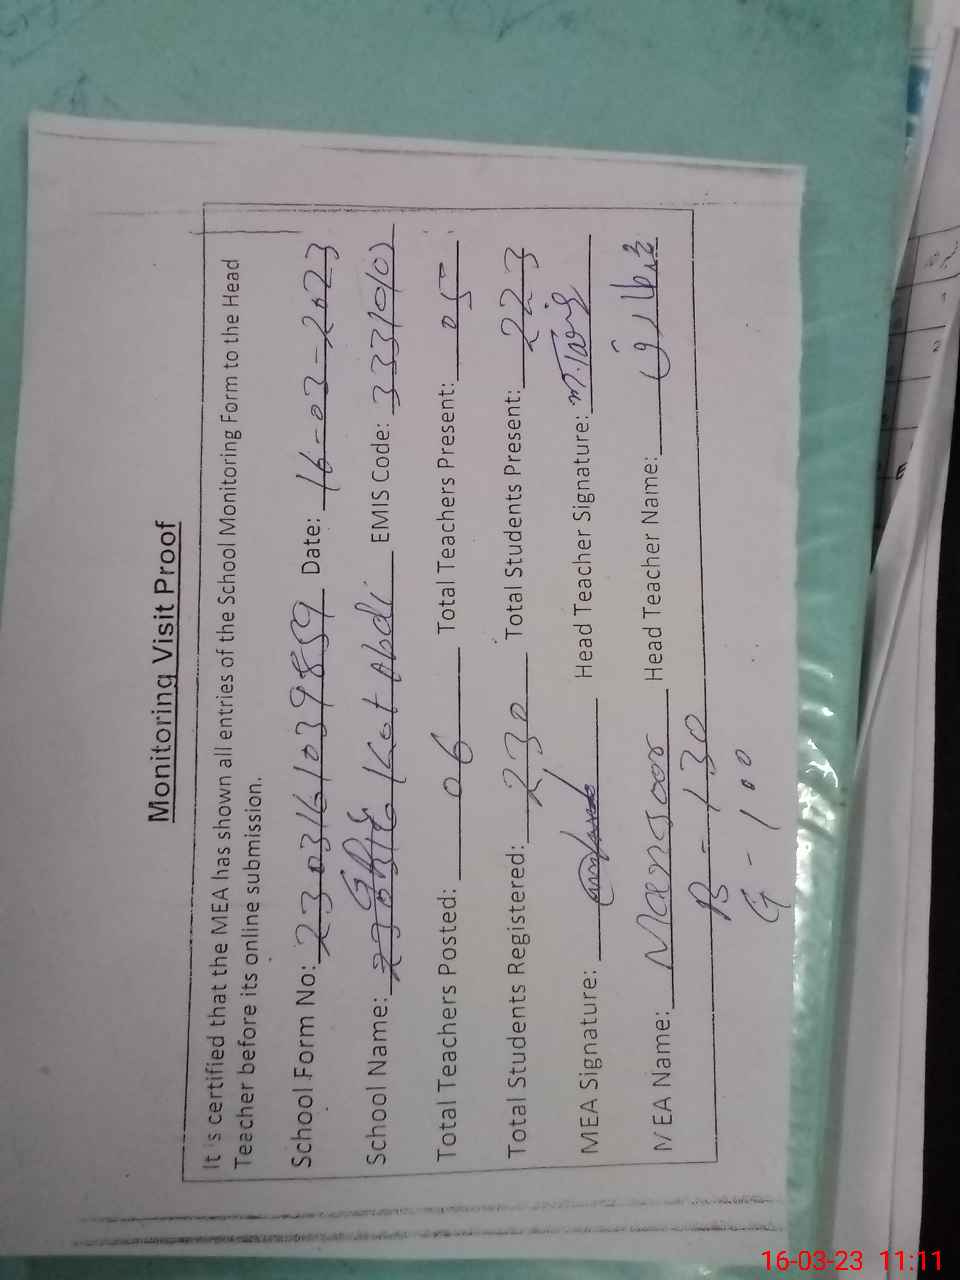 Monitoring Visit Proof
It is certified that the MEA has shown all entries of the School Monitoring Form to the Head
Teacher before its online submission.
School Form No: 2303161039859 Date: 16-03-2023
School Name: Kot Abdi EMIS Code: 33310102
Total Teachers Posted: 06 Total Teachers Present: 05
Total Students Registered: 230 Total Students Present: 223
MEA Signature: Head Teacher Signature: M.Tariq
MEA Name: Mansoor Head Teacher Name:
B - 130
G - 100
16-03-23 11:11